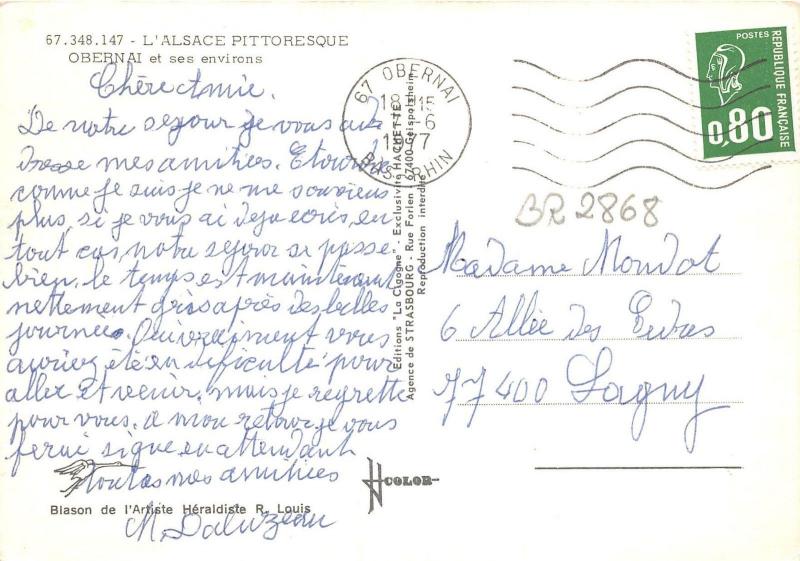 67.348.147 - L'ALSACE PITTORESQUE
OBERNAI et ses environs
Chère Amie.
De notre sejour je vous
mes amitiés. Etourdie
comme je suis je ne me souviens
plus, si je vous ai deja ecris, en
tout cas, notre sejour se passe
bien, le temps est maintenant
nettement gris après des belles
journees. Oui vraiment vous
auriez été en difficulté pour
aller et venir, mais je regrette
pour vous. a mon retour je vous
ferai signe en attendant
toutes mes amitiés
M. Daluzeau
Blason de l'Artiste Héraldiste R. Louis
Editions "La Cigogne" - Exclusivité HACHETTE
Agence de STRASBOURG - Rue Forlen - 67400 Geispolsheim
Reproduction interdite
COLOR
67 OBERNAI
18 H 15
6
1977
BAS-RHIN
POSTES
REPUBLIQUE FRANÇAISE
0,80
BR 2868
Madame Mondot
6 Allée des Cedres
77400 Lagny